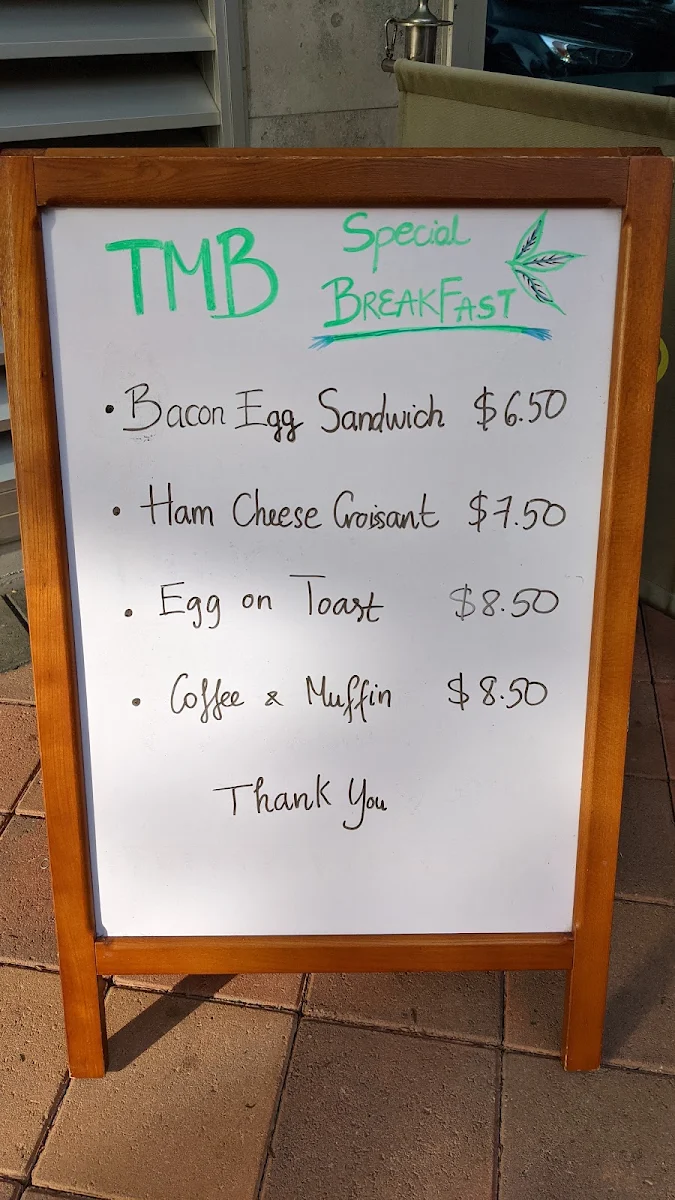 TMB Special
BREAKFAST
• Bacon Egg Sandwich $6.50
• Ham Cheese Croisant $7.50
• Egg on Toast $8.50
• Coffee & Muffin $8.50
Thank You